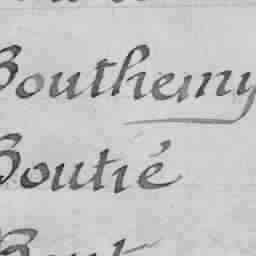 Bouthemy
Boutié